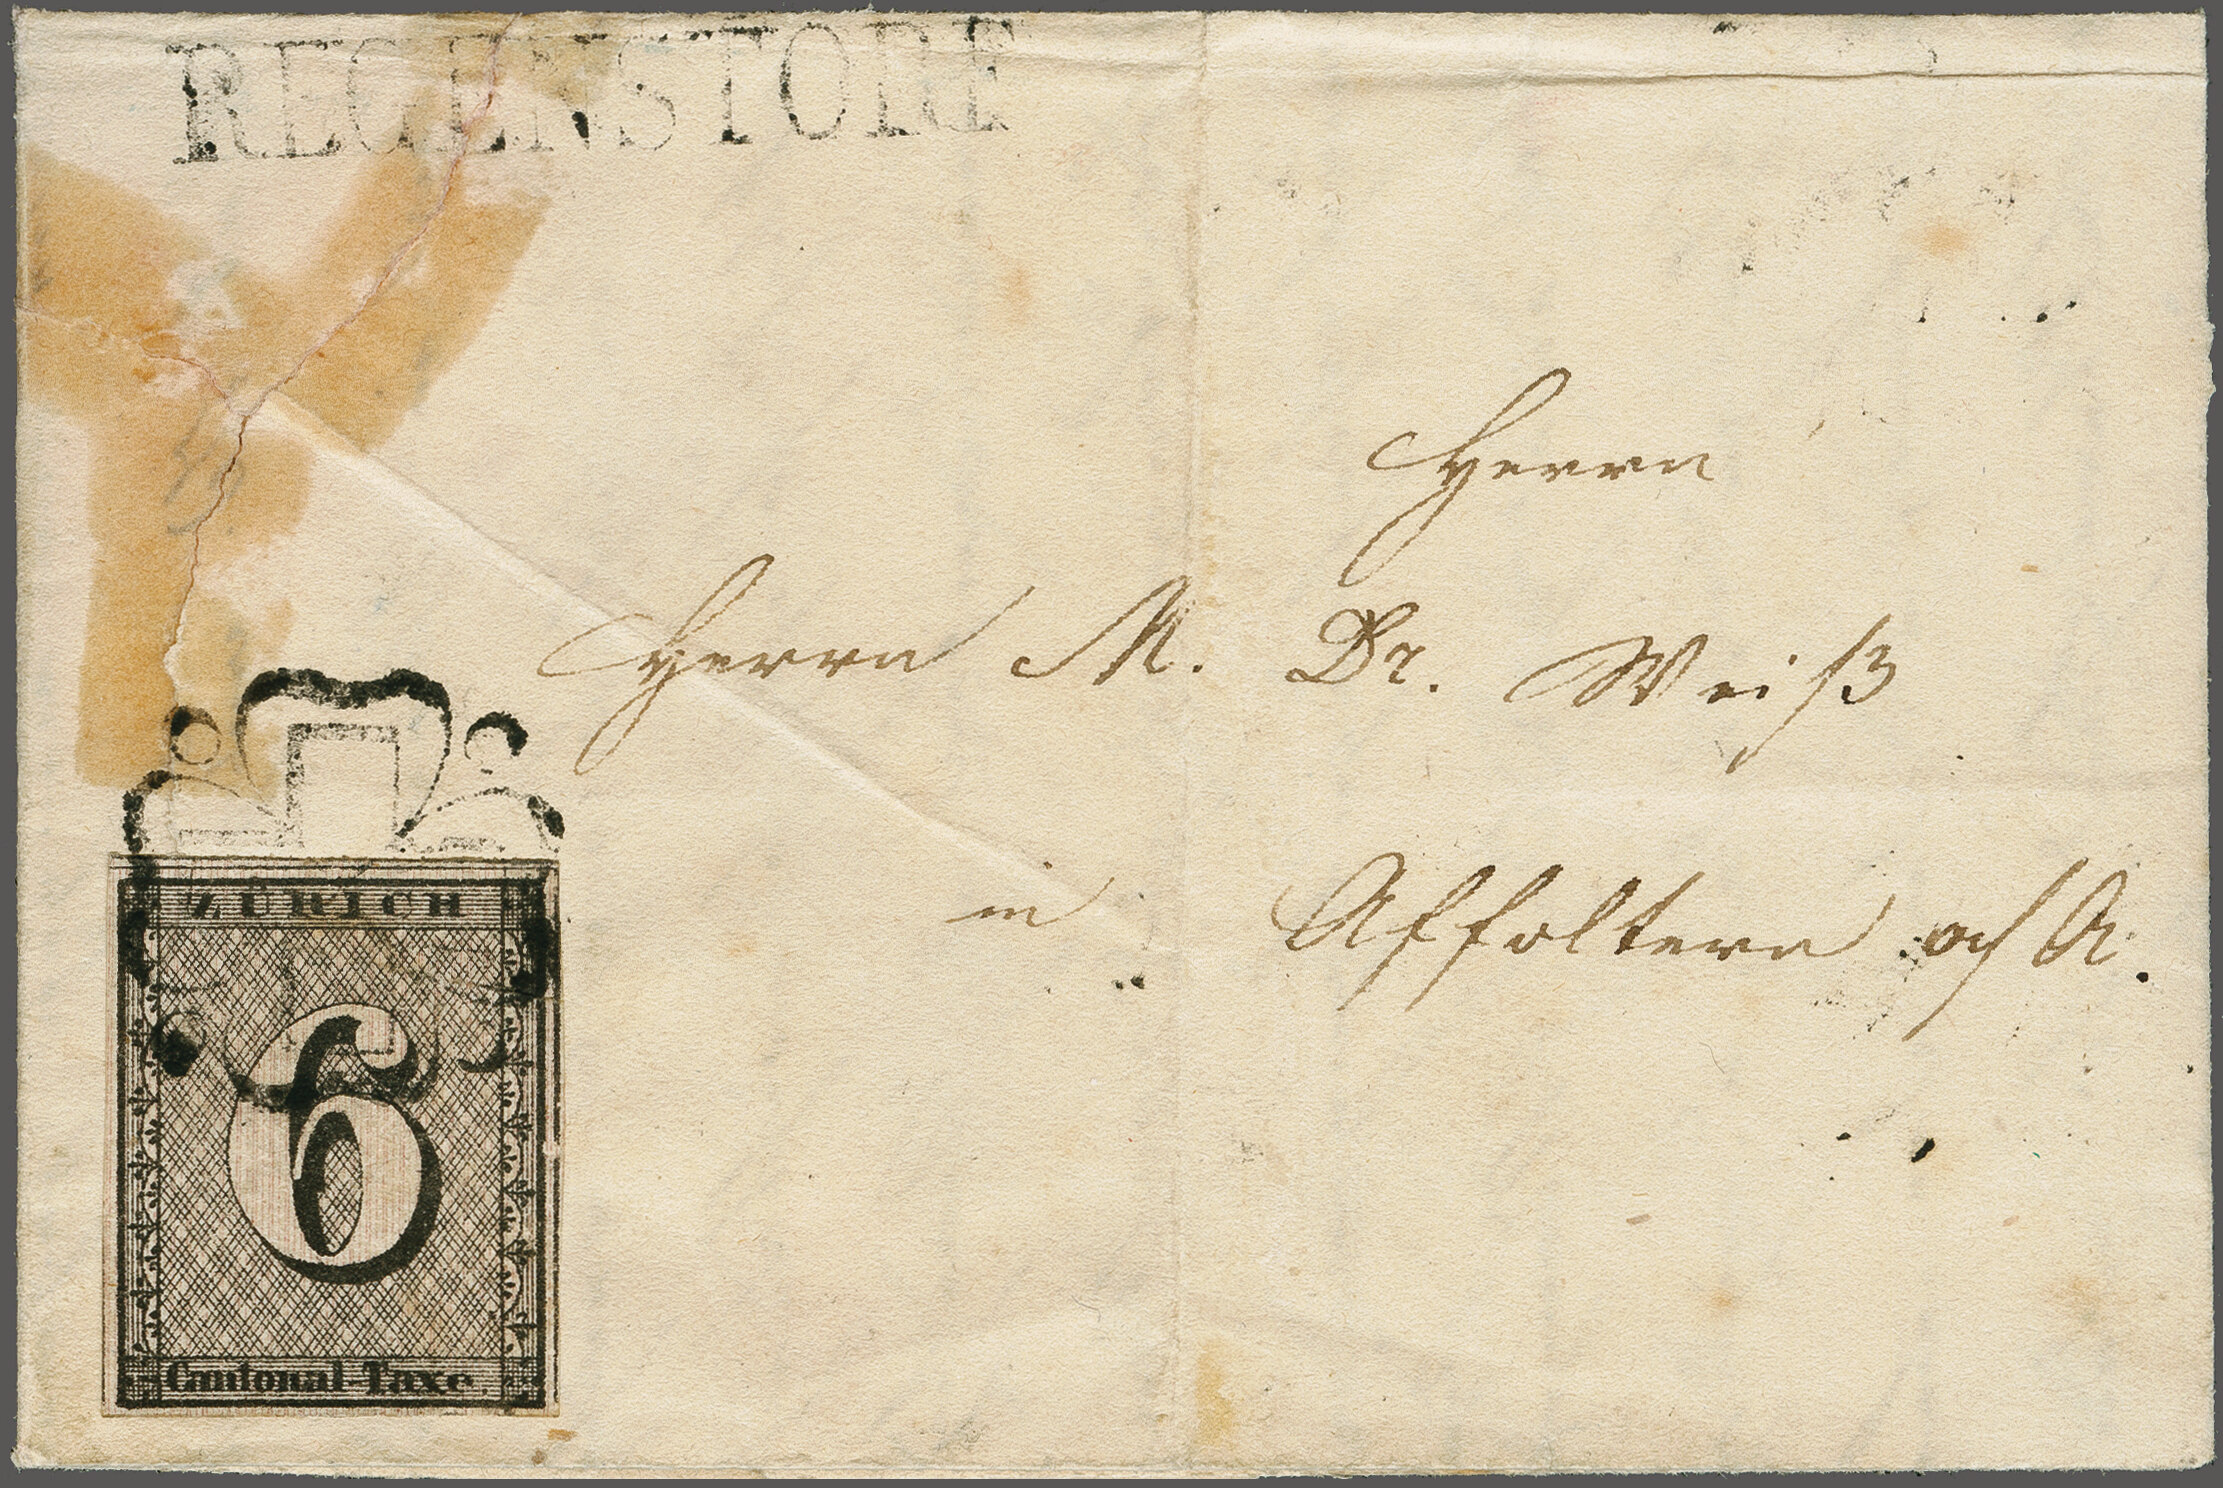 REGENSTORF
Herrn
Herrn M. Dr. Weiß
in Affoltern a/A.
ZÜRICH
6
Cantonal-Taxe.